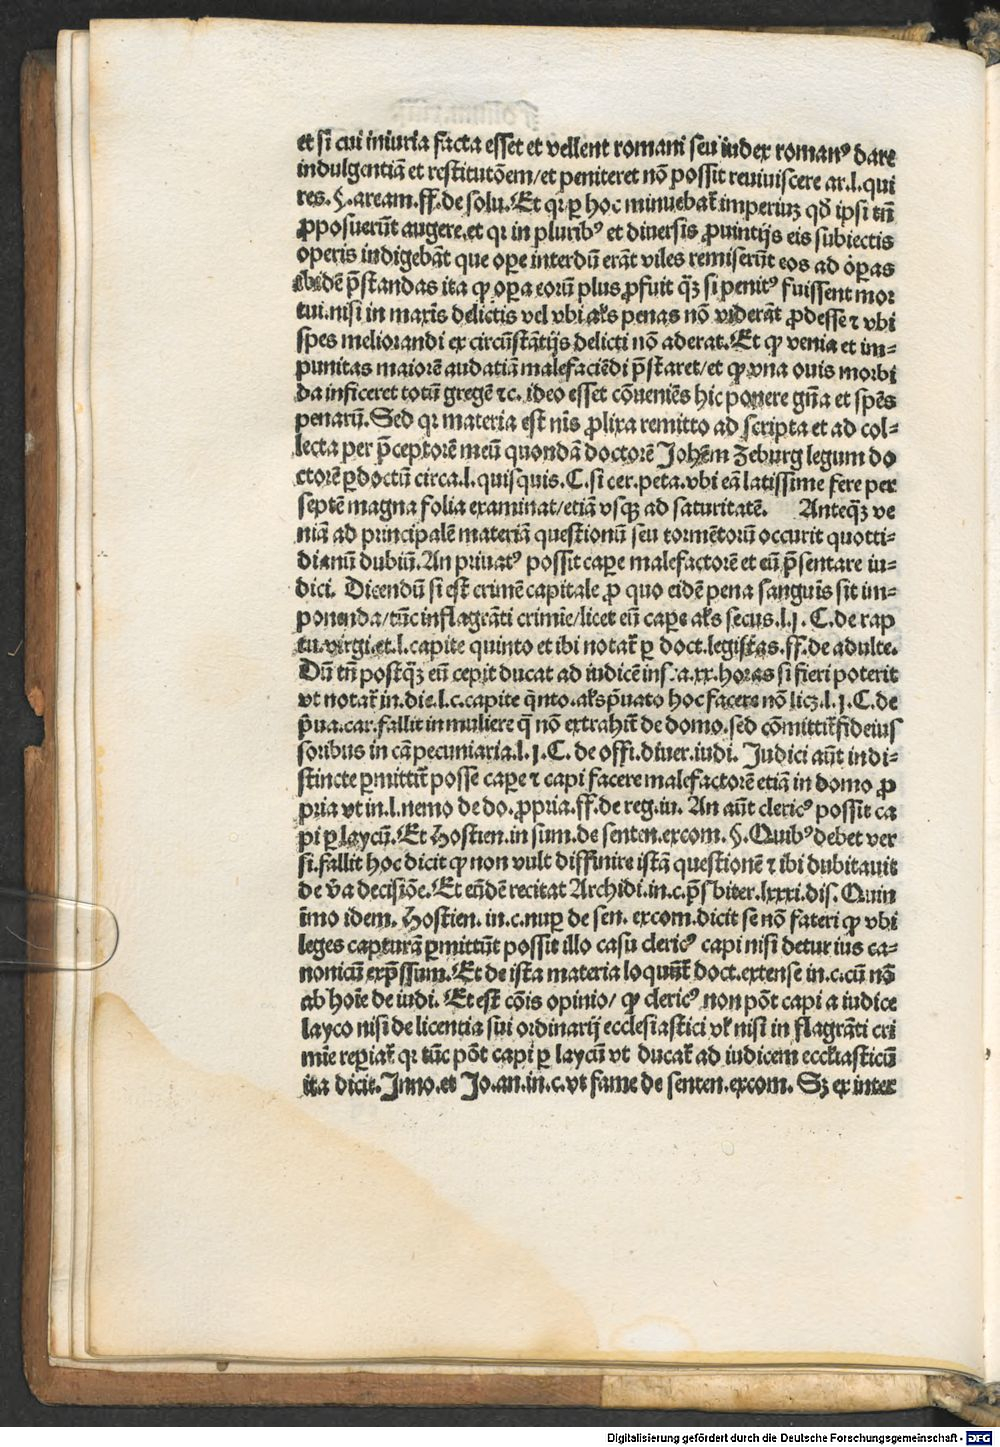 et si cui iniuria facta esset et vellent romani seu iudex romanꝰ dare
indulgentiã et restitutõem/et peniteret nõ possit reuiuiscere ar.l.qui
res.§.aream.ff.de solu. Et qꝛ ꝑ hoc minuebat̃ imperiuꝫ qd̃ ipsi tñ
ꝓposuerũt augere.et qꝛ in pluribꝰ et diuersis ꝓuintijs eis subiectis
operis indigebãt que oꝑe interdũ erãt viles remiserũt eos ad oꝑas
ibidẽ p̃standas ita ꝙ oꝑa eorũ plus ꝓfuit q̃ꝫ si penitꝰ fuissent mor
tui.nisi in maxĩs delictis vel vbi al̃s penas nõ viderãt ꝓdesse ⁊ vbi
spes meliorandi ex circũstãtijs delicti nõ aderat. Et ꝙ venia et im⸗
punitas maiorẽ audatiã malefaciẽdi p̃staret/et ꝙ vna ouis morbi
da inficeret totũ gregẽ ⁊c. ideo esset cõueniẽs hic ponere gña et spẽs
penarũ. Sed qꝛ materia est nĩs ꝓlixa remitto ad scripta et ad col⸗
lecta per p̃ceptorẽ meũ quondã doctorẽ Johẽm Zeburg legum do
ctorẽ ꝑdoctũ circa.l.quisquis.C.si cer.peta.vbi eã latissime fere per
septẽ magna folia examinat/etiã vsqꝫ ad saturitatẽ. Anteq̃ꝫ ve
niã ad principalẽ materiã questionũ seu tormẽtorũ occurit quotti⸗
dianũ dubiũ. An priuatꝰ possit caꝑe malefactorẽ et eũ p̃sentare iu⸗
dici. Dicendũ si est crimẽ capitale ꝓ quo eidẽ pena sanguĩs sit im⸗
ponenda/tũc inflagrãti crimĩe/licet eũ caꝑe al̃s secus.l.j.C.de rap
tu.virgi.et.l.capite quinto et ibi notat̃ ꝑ doct.legistas.ff.de adulte.
Dũ tñ postq̃ꝫ eũ cepit ducat ad iudicẽ infra.xx.horas si fieri poterit
vt notat̃ in.die.l.c.capite q̃nto.al̃s p̃uato hoc facere nõ licꝫ.l.j.C.de
p̃ua.car.fallit in muliere q̃ nõ extrahit̃ de domo.sed cõmittit̃ fideius
soribus in cã pecuniaria.l.j.C.de offi.diuer.iudi. Judici aũt indi⸗
stincte ꝑmittit̃ posse caꝑe ⁊ capi facere malefactorẽ etiã in domo ꝓ
pria vt in.l.nemo de do.ꝓpria.ff.de reg.iu. An aũt clericꝰ possit ca
pi ꝑ laycũ. Et Hostien.in sum.de senten.excom.§.Quibꝰ debet ver
si.fallit hoc dicit ꝙ non vult diffinire istã questionẽ ⁊ ibi dubitauit
de ṽa decisiõe. Et eũdẽ recitat Archidi.in.c.p̃sbiter.lxxxi.dis. Quin
ĩmo idem. Hostien. in.c.nuꝑ de sen. excom.dicit se nõ fateri ꝙ vbi
leges capturã ꝑmittũt possit illo casu clericꝰ capi nisi detur ius ca⸗
nonicũ exp̃ssum. Et de ista materia loquũt̃ doct.extense in.c.cũ nõ
ab hoĩe de iudi. Et est cõis opinio/ ꝙ clericꝰ non põt capi a iudice
layco nisi de licentia sui ordinarij ecclesiastici vl̃ nisi in flagrãti cri
mĩe reꝑiat̃ qꝛ tũc põt capi ꝑ laycũ vt ducat̃ ad iudicem eccl̃iasticũ
ita dicit. Inno.et Jo.an.in.c.vt fame de senten.excom. Sꝫ ex inter
Digitalisierung gefördert durch die Deutsche Forschungsgemeinschaft - DFG